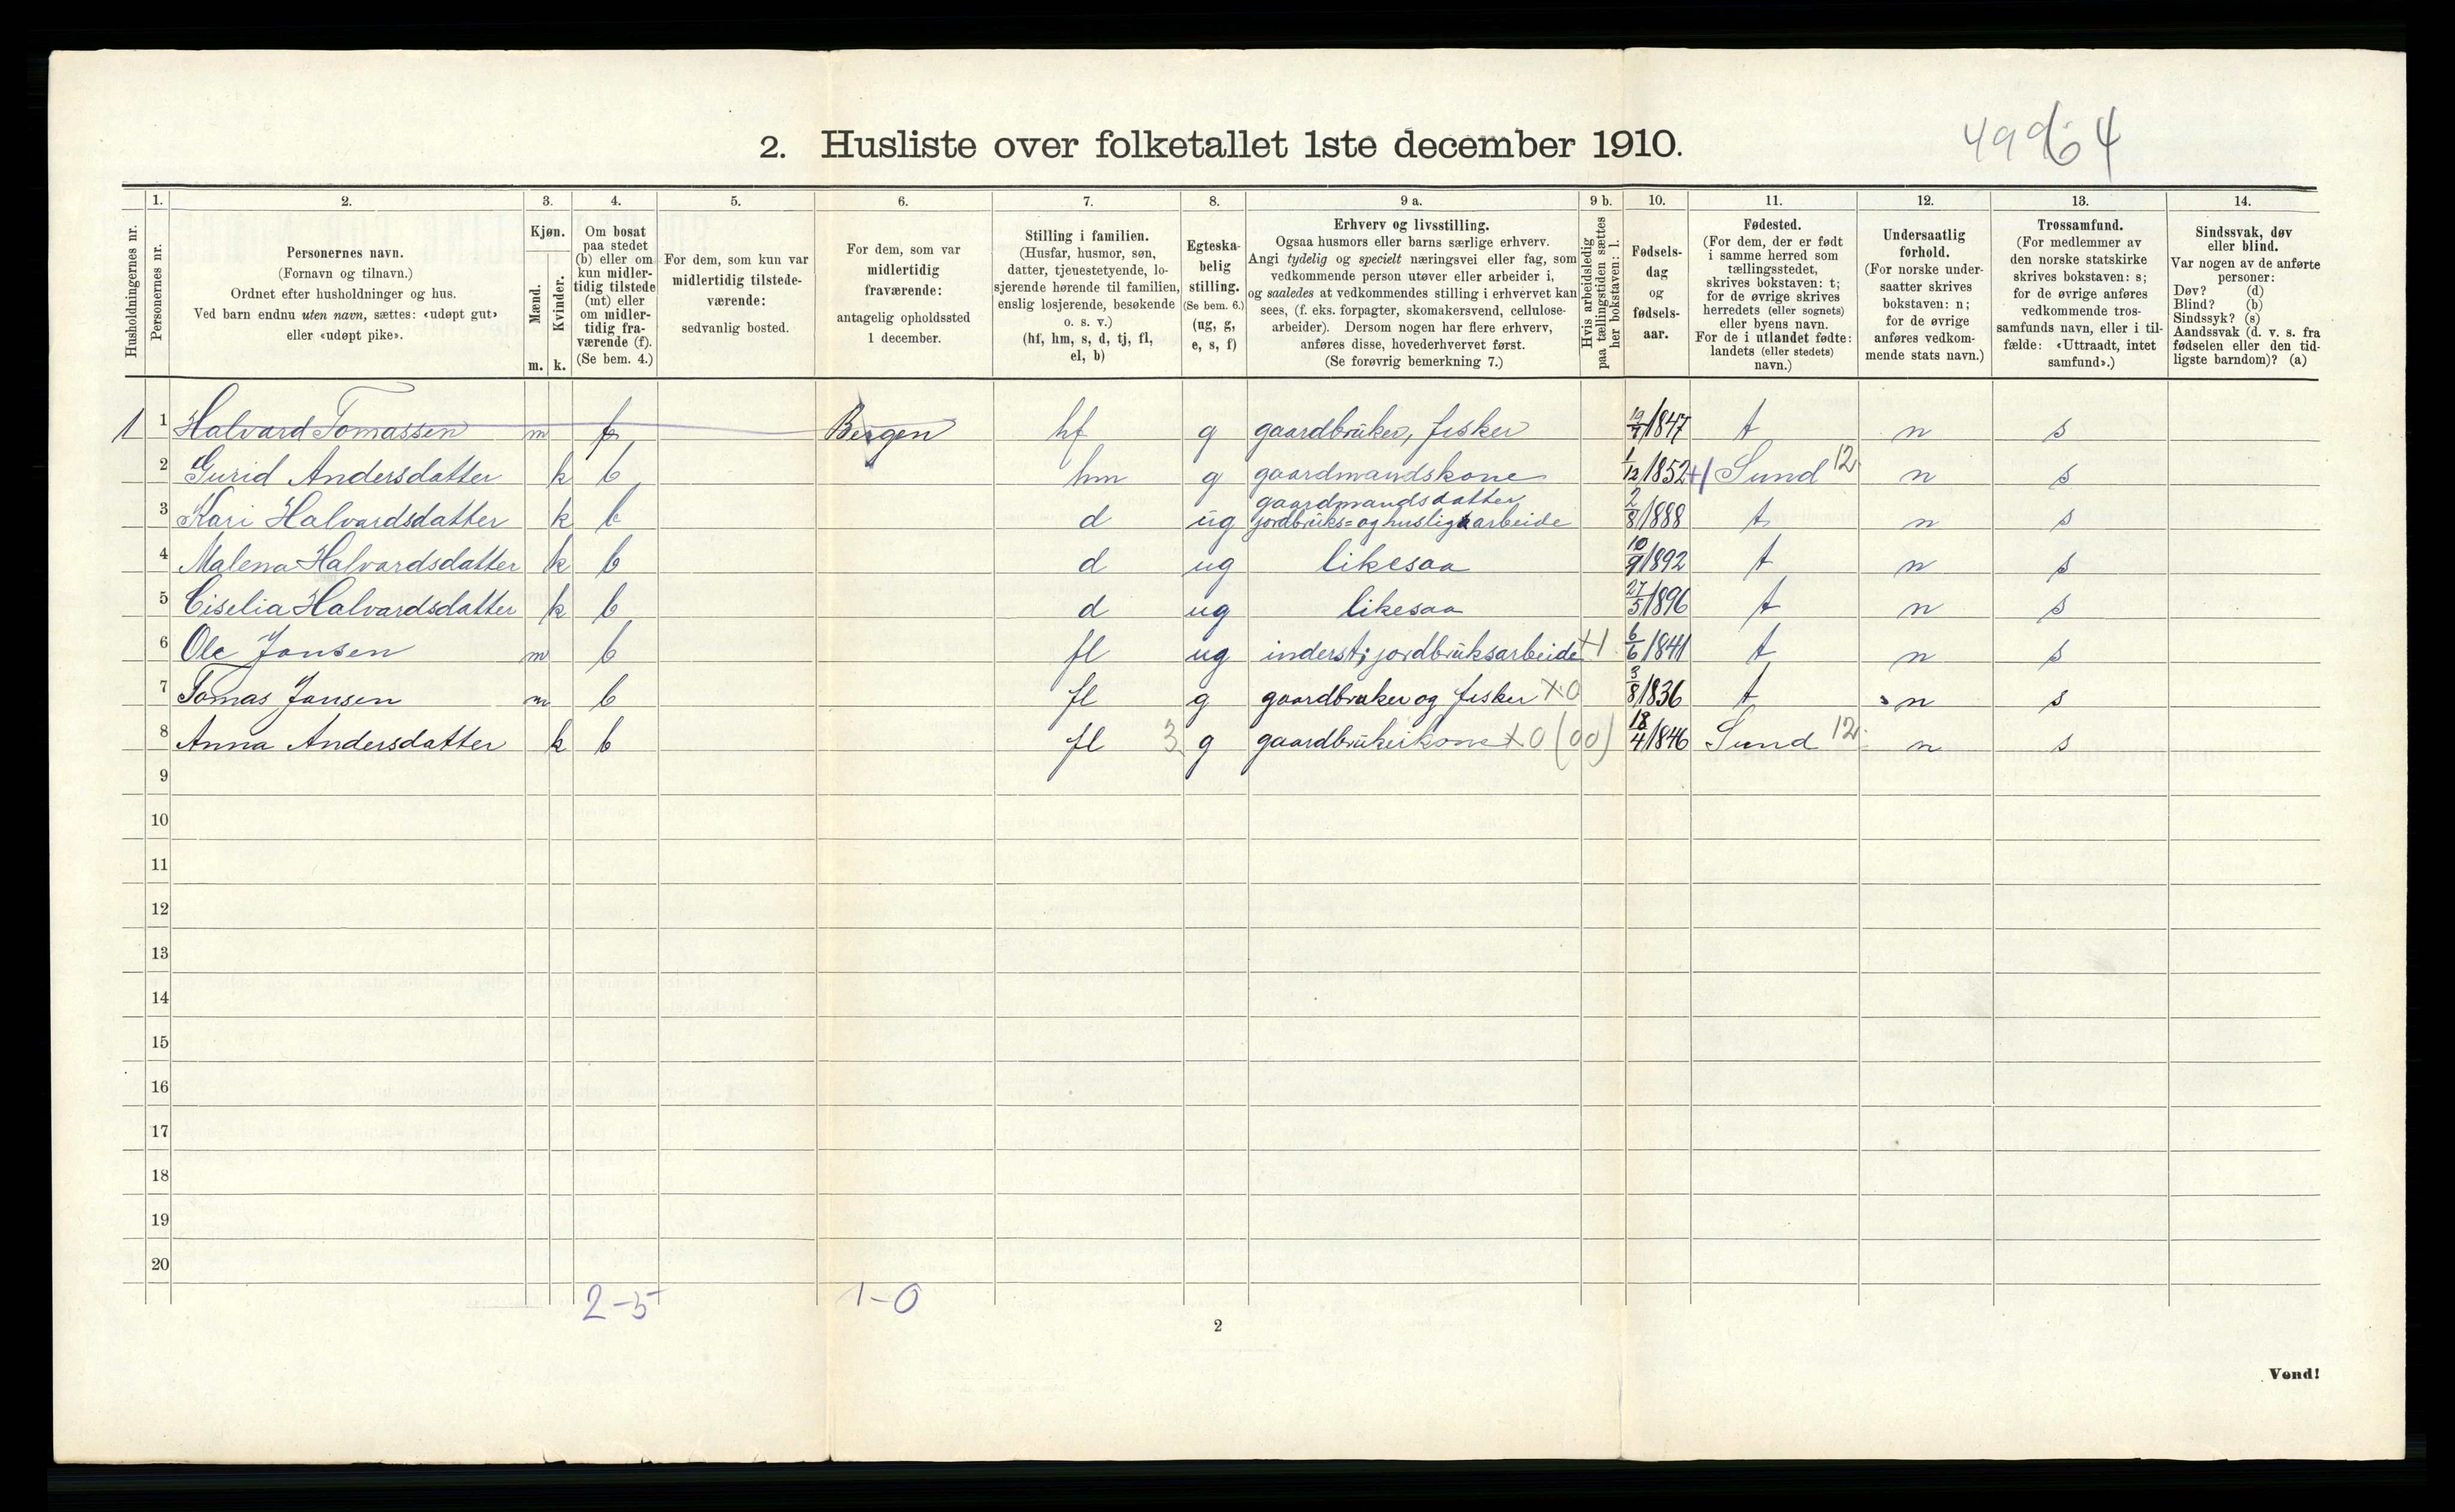 2. Husliste over folketallet 1ste december 1910.
4964
Husholdningernes nr.
1. Personernes nr.
2. Personernes navn.
(Fornavn og tilnavn.)
Ordnet efter husholdninger og hus.
Ved barn endnu uten navn, sættes: «udøpt gut»
eller «udøpt pike».
3. Kjøn.
Mænd. m.
Kvinder. k.
4. Om bosat
paa stedet
(b) eller om
kun midler-
tidig tilstede
(mt) eller
om midler-
tidig fra-
værende (f).
(Se bem. 4.)
5. For dem, som kun var
midlertidig tilstede-
værende:
sedvanlig bosted.
6. For dem, som var
midlertidig
fraværende:
antagelig opholdssted
1 december.
7. Stilling i familien.
(Husfar, husmor, søn,
datter, tjenestetyende, lo-
sjerende hørende til familien,
enslig losjerende, besøkende
o. s. v.)
(hf, hm, s, d, tj, fl,
el, b)
8. Egteska-
belig
stilling.
(Se bem. 6.)
(ug, g,
e, s, f)
9 a. Erhverv og livsstilling.
Ogsaa husmors eller barns særlige erhverv.
Angi tydelig og specielt næringsvei eller fag, som
vedkommende person utøver eller arbeider i,
og saaledes at vedkommendes stilling i erhvervet kan
sees, (f. eks. forpagter, skomakersvend, cellulose-
arbeider). Dersom nogen har flere erhverv,
anføres disse, hovederhvervet først.
(Se forøvrig bemerkning 7.)
9 b. Hvis arbeidsledig
paa tællingstiden sættes
her bokstaven: l.
10. Fødsels-
dag
og
fødsels-
aar.
11. Fødested.
(For dem, der er født
i samme herred som
tællingsstedet,
skrives bokstaven: t;
for de øvrige skrives
herredets (eller sognets)
eller byens navn.
For de i utlandet fødte:
landets (eller stedets)
navn.)
12. Undersaatlig
forhold.
(For norske under-
saatter skrives
bokstaven: n;
for de øvrige
anføres vedkom-
mende stats navn.)
13. Trossamfund.
(For medlemmer av
den norske statskirke
skrives bokstaven: s;
for de øvrige anføres
vedkommende tros-
samfunds navn, eller i til-
fælde: «Uttraadt, intet
samfund».)
14. Sindssvak, døv
eller blind.
Var nogen av de anførte
personer:
Døv? (d)
Blind? (b)
Sindssyk? (s)
Aandssvak (d. v. s. fra
fødselen eller den tid-
ligste barndom)? (a)
1 1 Halvard Tomassen m f Bergen hf g gaardbruker, fisker 19/7 1847 t n s
2 Gurid Andersdatter k b hm g gaardmandskone 1/12 1852 +1 Sund 12 n s
3 Kari Halvardsdatter k b d ug gaardmandsdatter
jordbruks= og huslig arbeide 2/8 1888 t n s
4 Malena Halvardsdatter k b d ug likesaa 10/9 1892 t n s
5 Ciselia Halvardsdatter k b d ug likesaa 27/5 1896 t n s
6 Ole Jansen m b fl ug inderst; jordbruksarbeide +1 6/6 1841 t n s
7 Tomas Jansen m b fl g gaardbruker og fisker X0 3/8 1836 t n s
8 Anna Andersdatter k b fl 3 g gaardbrukerkone X0 (00) 18/4 1846 Sund 12 n s
9
10
11
12
13
14
15
16
17
18
19
20
2-5 1-0
2
Vend!